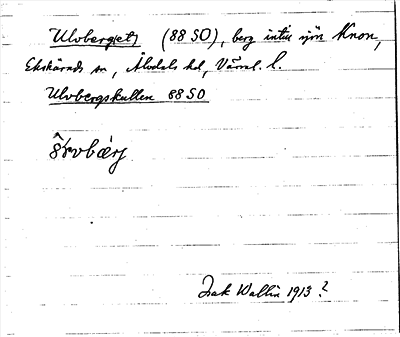 Ulvberg(et) (88 SO), berg intill sjön Knon,
Ekshärads sn, Älvdals hd, Värml. l.
Ulvbergskullen 88 SO
Isak Wallin 1913?